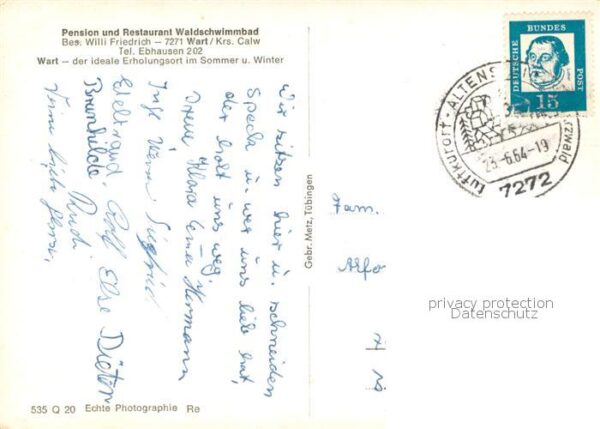 Pension und Restaurant Waldschwimmbad
Bes. Willi Friedrich — 7271 Wart / Krs. Calw
Tel. Ebhausen 202
Wart — der ideale Erholungsort im Sommer u. Winter
Wir sitzen hier u. schneiden
Speck u. wer uns lieb hat,
der holt uns weg.
Irene Klara Erna Hermann
Inge Werner Siegfried
Edeltraud, Rolf Else Dieter
Brunhilde Rudi
Gebr. Metz, Tübingen
535 Q 20 Echte Photographie Re
DEUTSCHE BUNDES POST
15
Luftkurort · ALTENS
rzwald
23.-6.64-19
7272
Fam.
privacy protection
Datenschutz